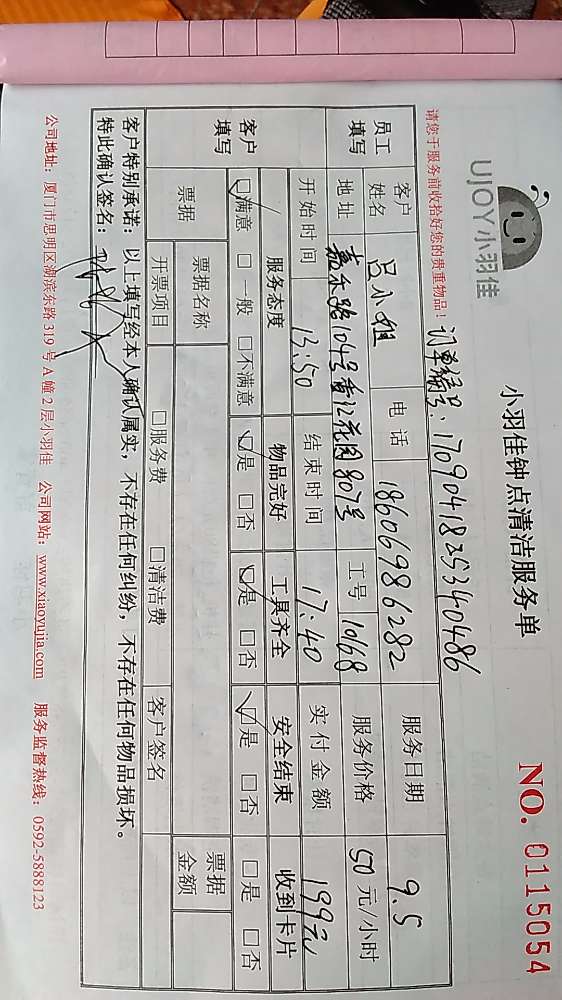 UJOY小羽佳
小羽佳钟点清洁服务单
NO. 0115054
请您于服务前收拾好您的贵重物品！
订单编号：17090418253340486
员工填写
客户姓名 吕小姐 电话 18606986282 服务日期 9.5
地址 嘉禾路104号香江花园807号 工号 1068 服务价格 50元/小时
开始时间 13:50 结束时间 17:40 实付金额 199元
客户填写
服务态度 物品完好 工具齐全 安全结束 收到卡片
☑满意 □一般 □不满意 ☑是 □否 ☑是 □否 ☑是 □否 □是 □否
票据 票据名称 票据金额
开票项目 □服务费 □清洁费 客户签名
客户特别承诺：以上填写经本人确认属实，不存在任何纠纷，不存在任何物品损坏。
特此确认签名：
公司地址：厦门市思明区湖滨东路319号A幢2层小羽佳 公司网站：www.xiaoyujia.com 服务监督热线：0592-5888123